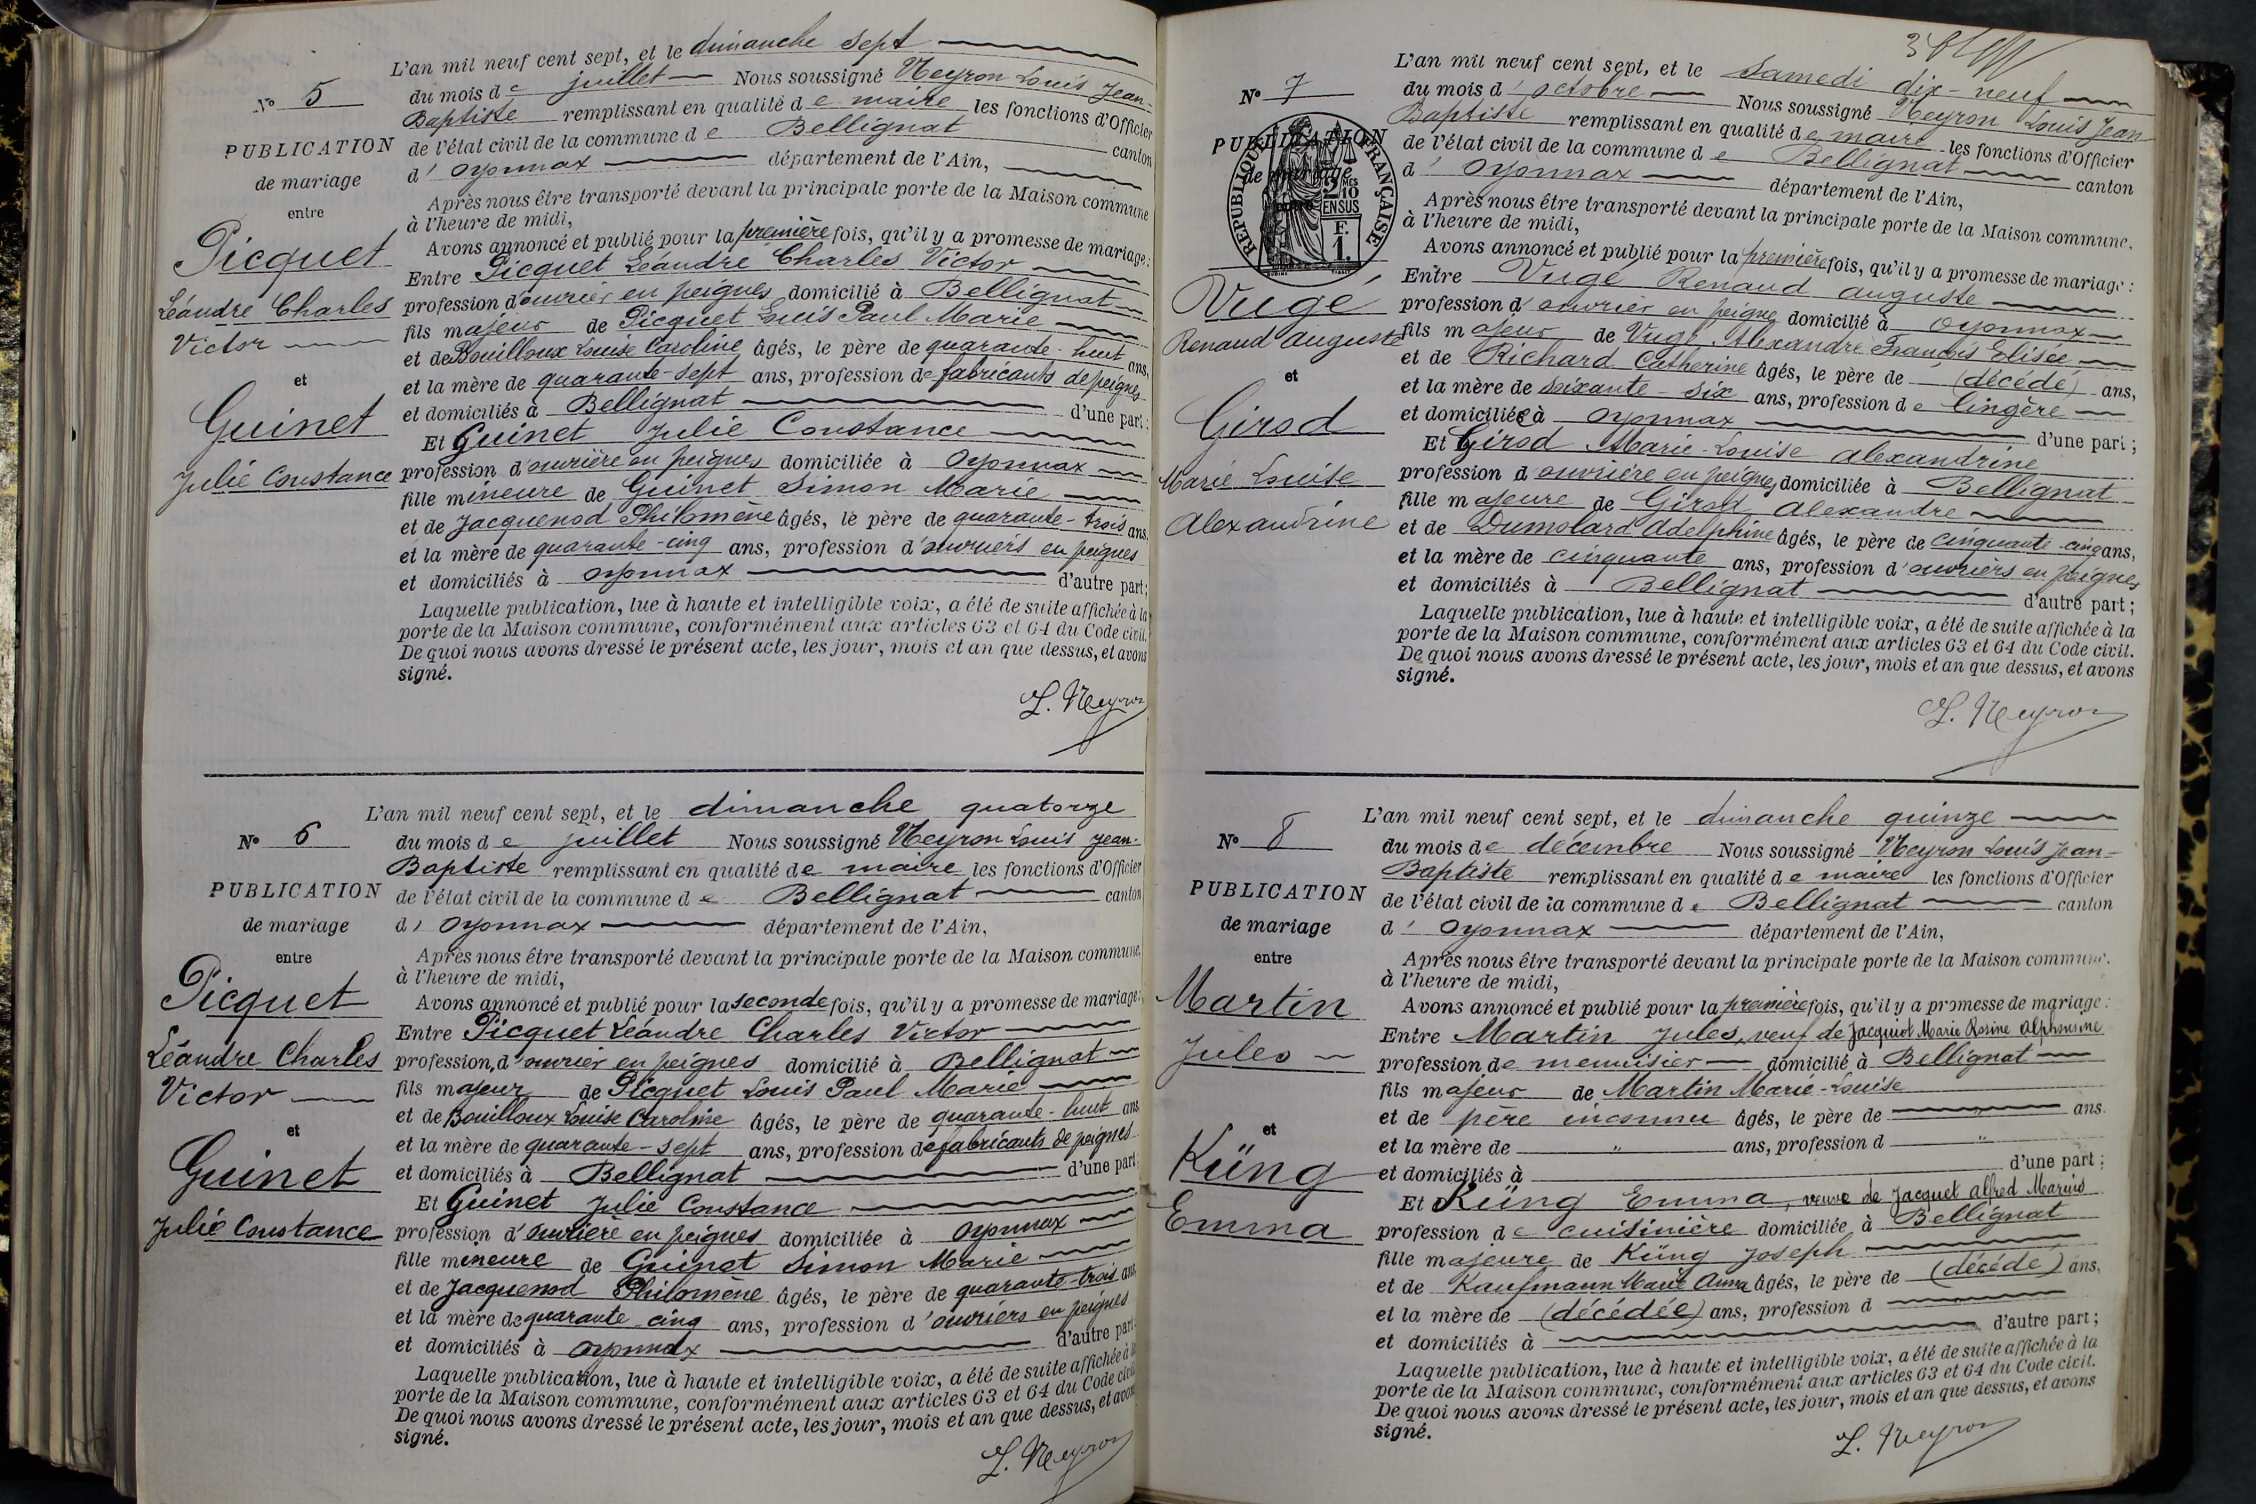 N° 5
PUBLICATION
de mariage
entre
Picquet
Léandre Charles
Victor
et
Guinet
Julie Constance
L'an mil neuf cent sept, et le dimanche sept
du mois de juillet Nous soussigné Neyron Louis Jean-
Baptiste remplissant en qualité de maire les fonctions d'Officier
de l'état civil de la commune de Bellignat canton
d' Oyonnax département de l'Ain,
Après nous être transporté devant la principale porte de la Maison commune
à l'heure de midi,
Avons annoncé et publié pour la première fois, qu'il y a promesse de mariage:
Entre Picquet Léandre Charles Victor
profession d'ouvrier en peignes domicilié à Bellignat
fils majeur de Picquet Louis Paul Marie
et de Bouilloux Louise Caroline âgés, le père de quarante-huit ans,
et la mère de quarante-sept ans, profession de fabricants de peignes
et domiciliés à Bellignat d'une part;
Et Guinet Julie Constance
profession d'ouvrière en peignes domiciliée à Oyonnax
fille mineure de Guinet Simon Marie
et de Jacquenod Philomène âgés, le père de quarante-trois ans,
et la mère de quarante-cinq ans, profession d'ouvriers en peignes
et domiciliés à Oyonnax d'autre part;
Laquelle publication, lue à haute et intelligible voix, a été de suite affichée à la
porte de la Maison commune, conformément aux articles 63 et 64 du Code civil.
De quoi nous avons dressé le présent acte, les jour, mois et an que dessus, et avons
signé.
L. Neyron
N° 6
PUBLICATION
de mariage
entre
Picquet
Léandre Charles
Victor
et
Guinet
Julie Constance
L'an mil neuf cent sept, et le dimanche quatorze
du mois de juillet Nous soussigné Neyron Louis Jean-
Baptiste remplissant en qualité de maire les fonctions d'Officier
de l'état civil de la commune de Bellignat canton
d' Oyonnax département de l'Ain,
Après nous être transporté devant la principale porte de la Maison commune,
à l'heure de midi,
Avons annoncé et publié pour la seconde fois, qu'il y a promesse de mariage:
Entre Picquet Léandre Charles Victor
profession d'ouvrier en peignes domicilié à Bellignat
fils majeur de Picquet Louis Paul Marie
et de Bouilloux Louise Caroline âgés, le père de quarante-huit ans
et la mère de quarante-sept ans, profession de fabricants de peignes
et domiciliés à Bellignat d'une part;
Et Guinet Julie Constance
profession d'ouvrière en peignes domiciliée à Oyonnax
fille mineure de Guinet Simon Marie
et de Jacquenod Philomène âgés, le père de quarante-trois ans,
et la mère de quarante cinq ans, profession d'ouvriers en peignes
et domiciliés à Oyonnax d'autre part;
Laquelle publication, lue à haute et intelligible voix, a été de suite affichée à la
porte de la Maison commune, conformément aux articles 63 et 64 du Code civil.
De quoi nous avons dressé le présent acte, les jour, mois et an que dessus, et avons
signé.
L. Neyron
N° 7
PUBLICATION
de mariage
RÉPUBLIQUE FRANÇAISE
2 MES
10
EN SUS
F.
1.
Vugé
Renaud Auguste
et
Girod
Marie Louise
Alexandrine
L'an mil neuf cent sept, et le Samedi dix-neuf
du mois d'octobre Nous soussigné Neyron Louis Jean
Baptiste remplissant en qualité de maire les fonctions d'Officier
de l'état civil de la commune de Bellignat canton
d' Oyonnax département de l'Ain,
Après nous être transporté devant la principale porte de la Maison commune.
à l'heure de midi,
Avons annoncé et publié pour la première fois, qu'il y a promesse de mariage:
Entre Vugé Renaud Auguste
profession d'ouvrier en peigne domicilié à Oyonnax
fils majeur de Vugé Alexandre François Elisée
et de Richard Catherine âgés, le père de (décédé) ans,
et la mère de soixante-six ans, profession de lingère
et domiciliée à Oyonnax d'une part;
Et Girod Marie-Louise Alexandrine
profession d'ouvrière en peignes domiciliée à Bellignat
fille majeure de Girod Alexandre
et de Dumolard Adelphine âgés, le père de cinquante-cinq ans,
et la mère de cinquante ans, profession d'ouvriers en peignes
et domiciliés à Bellignat d'autre part;
Laquelle publication, lue à haute et intelligible voix, a été de suite affichée à la
porte de la Maison commune, conformément aux articles 63 et 64 du Code civil.
De quoi nous avons dressé le présent acte, les jour, mois et an que dessus, et avons
signé.
L. Neyron
N° 8
PUBLICATION
de mariage
entre
Martin
Jules
et
Küng
Emma
L'an mil neuf cent sept, et le dimanche quinze
du mois de décembre Nous soussigné Neyron Louis Jean-
Baptiste remplissant en qualité de maire les fonctions d'Officier
de l'état civil de la commune de Bellignat canton
d' Oyonnax département de l'Ain,
Après nous être transporté devant la principale porte de la Maison commune.
à l'heure de midi,
Avons annoncé et publié pour la première fois, qu'il y a promesse de mariage:
Entre Martin Jules, veuf de Jacquiot Marie Rosine Alphonsine
profession de menuisier domicilié à Bellignat
fils majeur de Martin Marie-Louise
et de père inconnu âgés, le père de " ans.
et la mère de " ans, profession d "
et domiciliés à d'une part;
Et Küng Emma, veuve de Jacquet Alfred Marius
profession de cuisinière domiciliée à Bellignat
fille majeure de Küng Joseph
et de Kaufmann Marie Anna âgés, le père de (décédé) ans,
et la mère de (décédée) ans, profession d
et domiciliés à d'autre part;
Laquelle publication, lue à haute et intelligible voix, a été de suite affichée à la
porte de la Maison commune, conformément aux articles 63 et 64 du Code civil.
De quoi nous avons dressé le présent acte, les jour, mois et an que dessus, et avons
signé.
L. Neyron